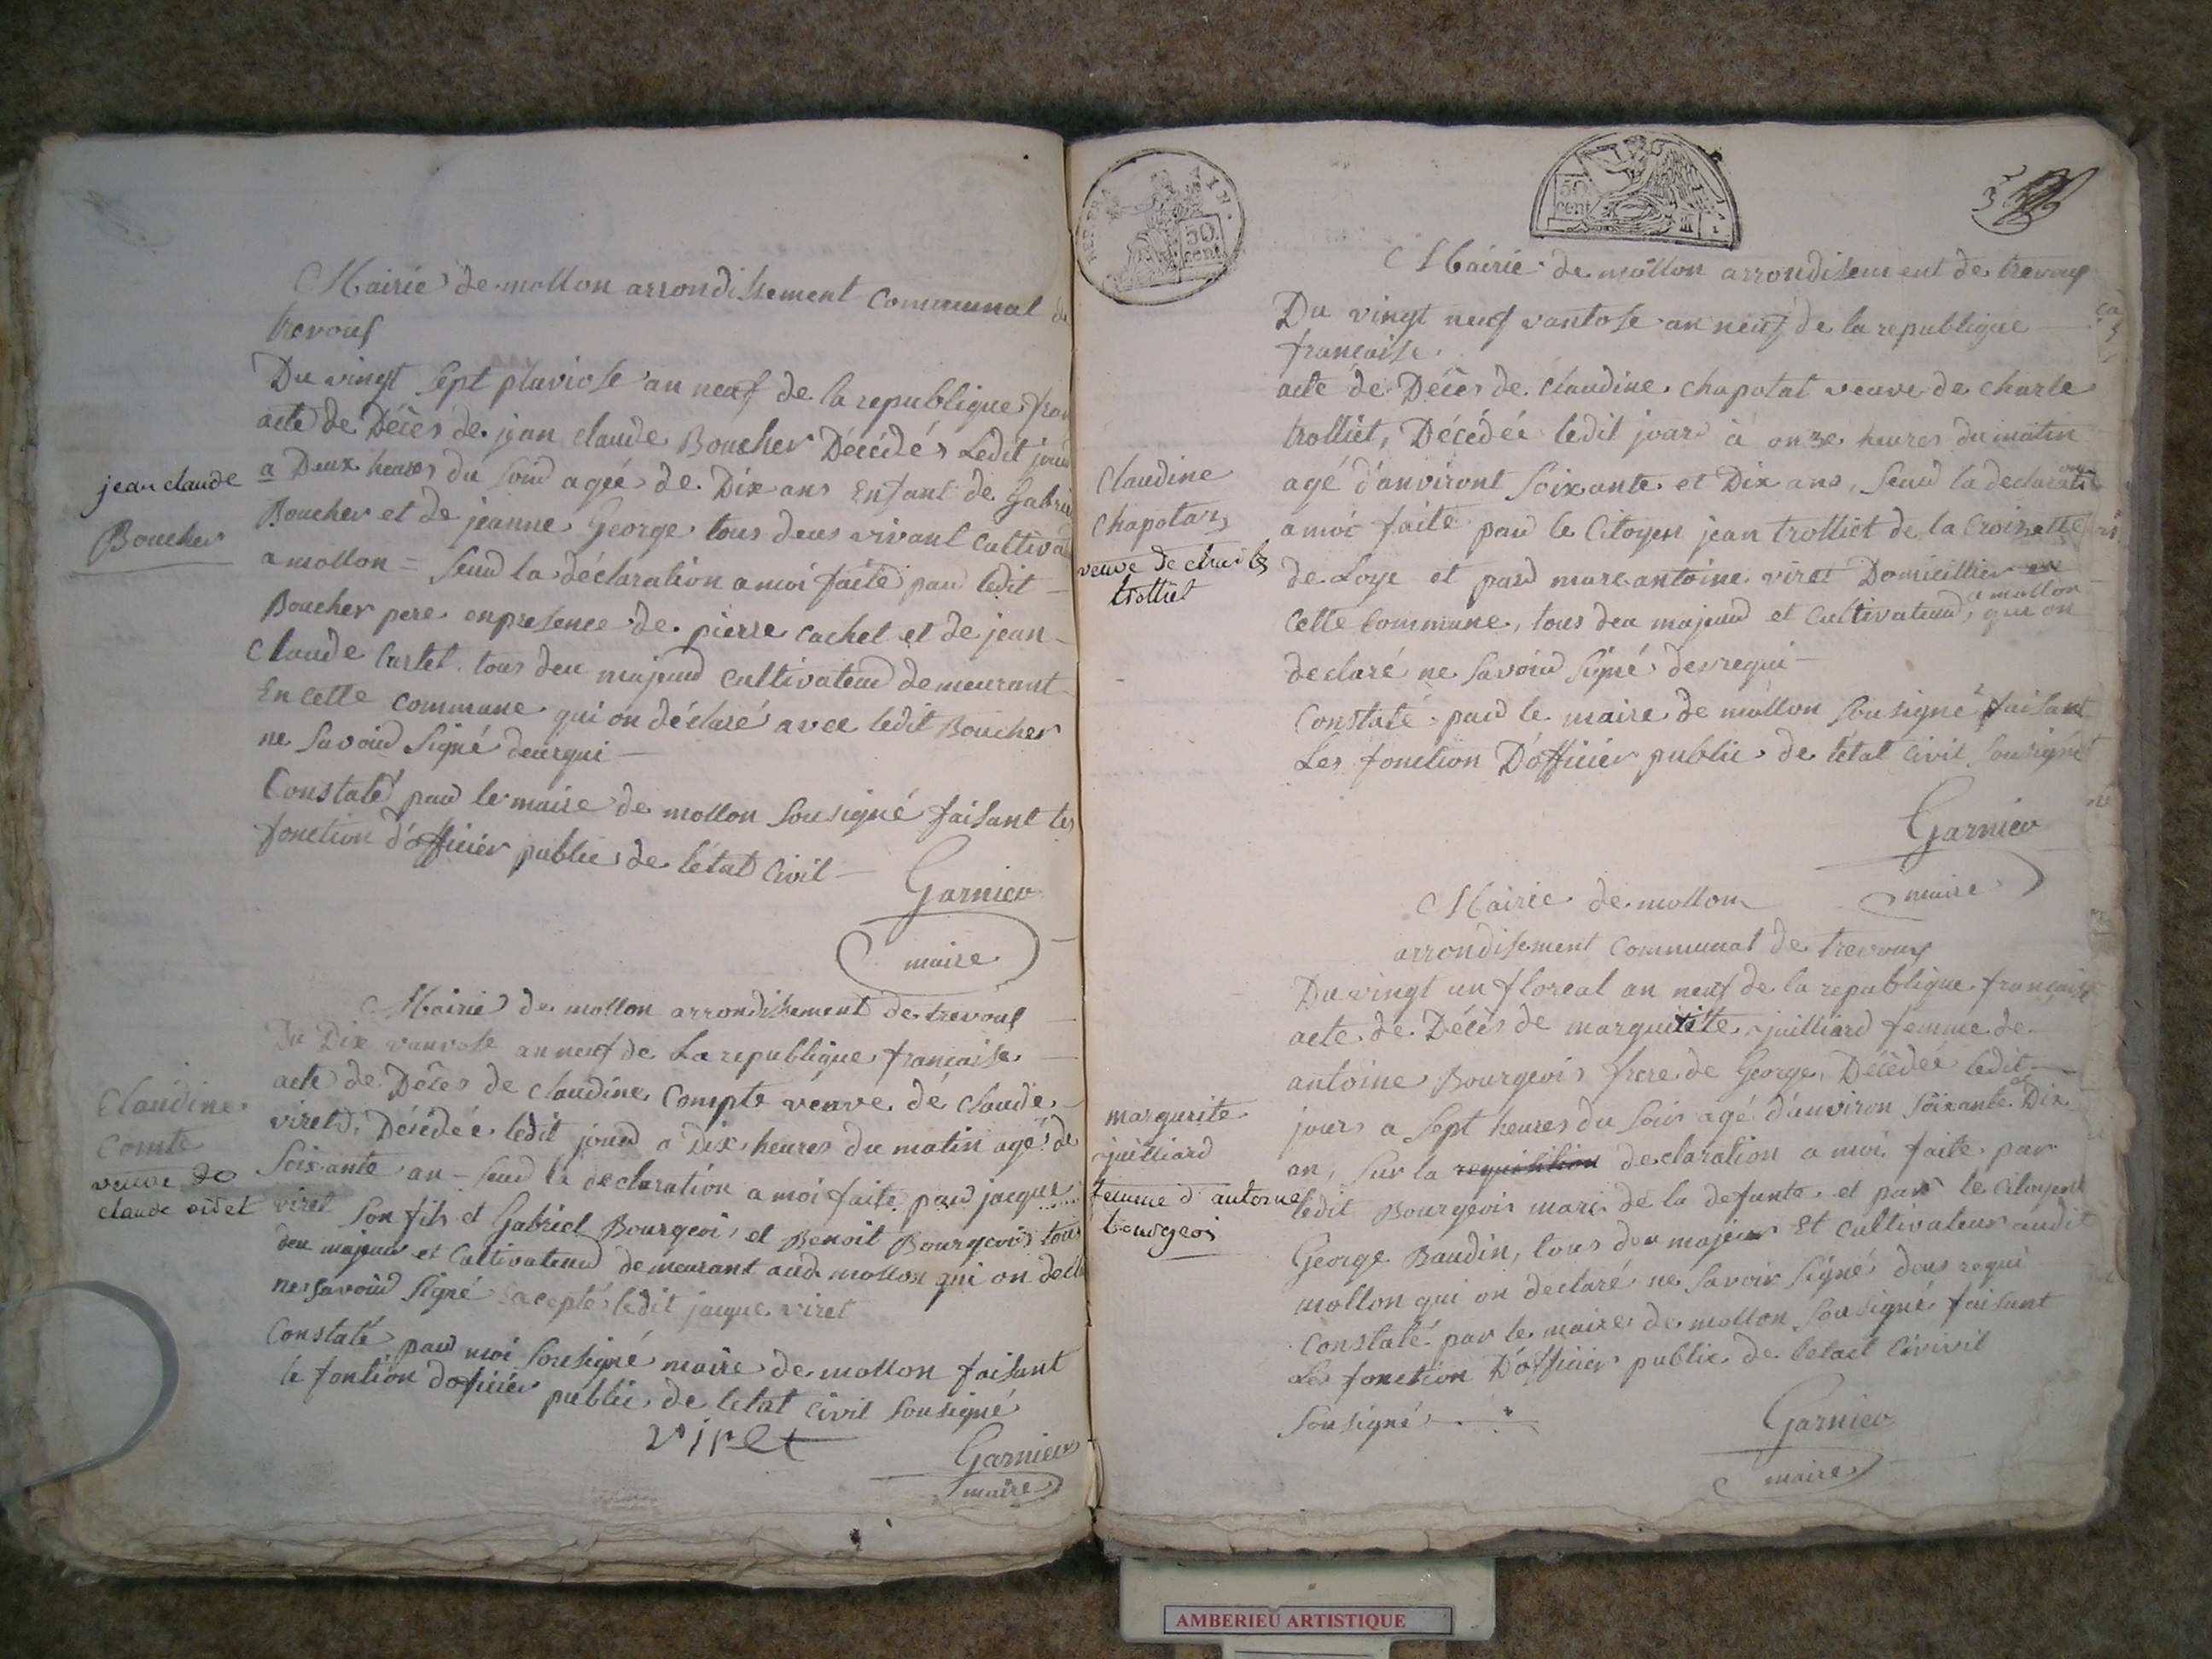 Mairie de mollon arrondissement Communal de
trevouf
Du vingt sept pluviose an neuf de la republique fran
acte de Décès de jean claude Boucher Décédés Ledit jour
a Deux heures du soid ageé de Dix ans Enfant de Gabrie
Boucher et de jeanne George tous deus vivant Cultiva
a mollon = Suid la déclaration a moi faite paud ledit
Boucher pere en presence de pierre cachet et de jean
Claude Curtet tous deu majeud cultivateud demeurant
En cette Commune qui on déclaré avec ledit Boucher
ne Savoid Signé deurequi
Constaté paud le maire de mollon Sousigné faisant les
fonction d'officier publie de létat Civil
Garnier
maire
jean claude
Boucher
Mairie de mollon arrondissement de trevouf
Du Dix vanvose an neuf de La republique française
acte de Décès de claudine Compte veuve de claude
viret, Décédée ledit joud a Dix heures du matin agé de
Soixante an - Seud la declaration a moi faite paud jacque
viret Son fils et Gabriel Bourgeois et Benoit Bourgeois tous
deu majeud et Cultivateud demeurant aud. mollon qui on decla
ne savoid Signé excepté ledit jacque viret
Constaté paud moi Sousigné maire de mollon faisant
le fontion doficier publie de letat Civil Sousigné
viret
Garnier
maire
Claudine
Comte
veuve de
claude viret
REP. FRA
AIN.
50
cent
50
cent
3
Mairie de mollon arrondisement de trevouf
Du vingt neuf vantose an neuf de la republique
française
acte de Décès de claudine chapotat veuve de charle
trolliet, Décédée ledit jourd à onze heures du matin
agé d'anviront Soixante et Dix ans, Seud la declaration
a moi faite paud le Citoyen jean trolliet de la Croizette
de Loye et paud marc antoine viret Domicillier en
a mollon
Cette Commune, tous deu majeud et Cultivateud, qui on
declaré ne Savoid Signé devrequi
Constaté paud le maire de mollon Sousigné faisant
Les fonction D'officier publie de létat Civil Sousigné
Garnier
maire
Claudine
Chapotaz
veuve de charles
trolliet
Mairie de mollon
arrondisement Communal de trevouf
Du vingt un floreal an neuf de la republique française
acte de Décès de marguerite juilliard femme de
antoine Bourgeois frere de George, Décédée ledit
jours a Sept heures du Soir agé d'environ Soixante et Dix
an, Sur la requisition declaration a moi faite par
ledit Bourgeois mari de la defunte et par le Citoyent
George Baudin, tous deu majeur Et cultivateur audit
mollon qui on declaré ne Savoir Signé deus requi
Constaté par le maire de mollon Sousigné faisant
Les fonction D'officier publie de letaet Civivil
Sousigné
Garnier
maire
margurite
juilliard
femme d'antoine
bourgeois
AMBERIEU ARTISTIQUE